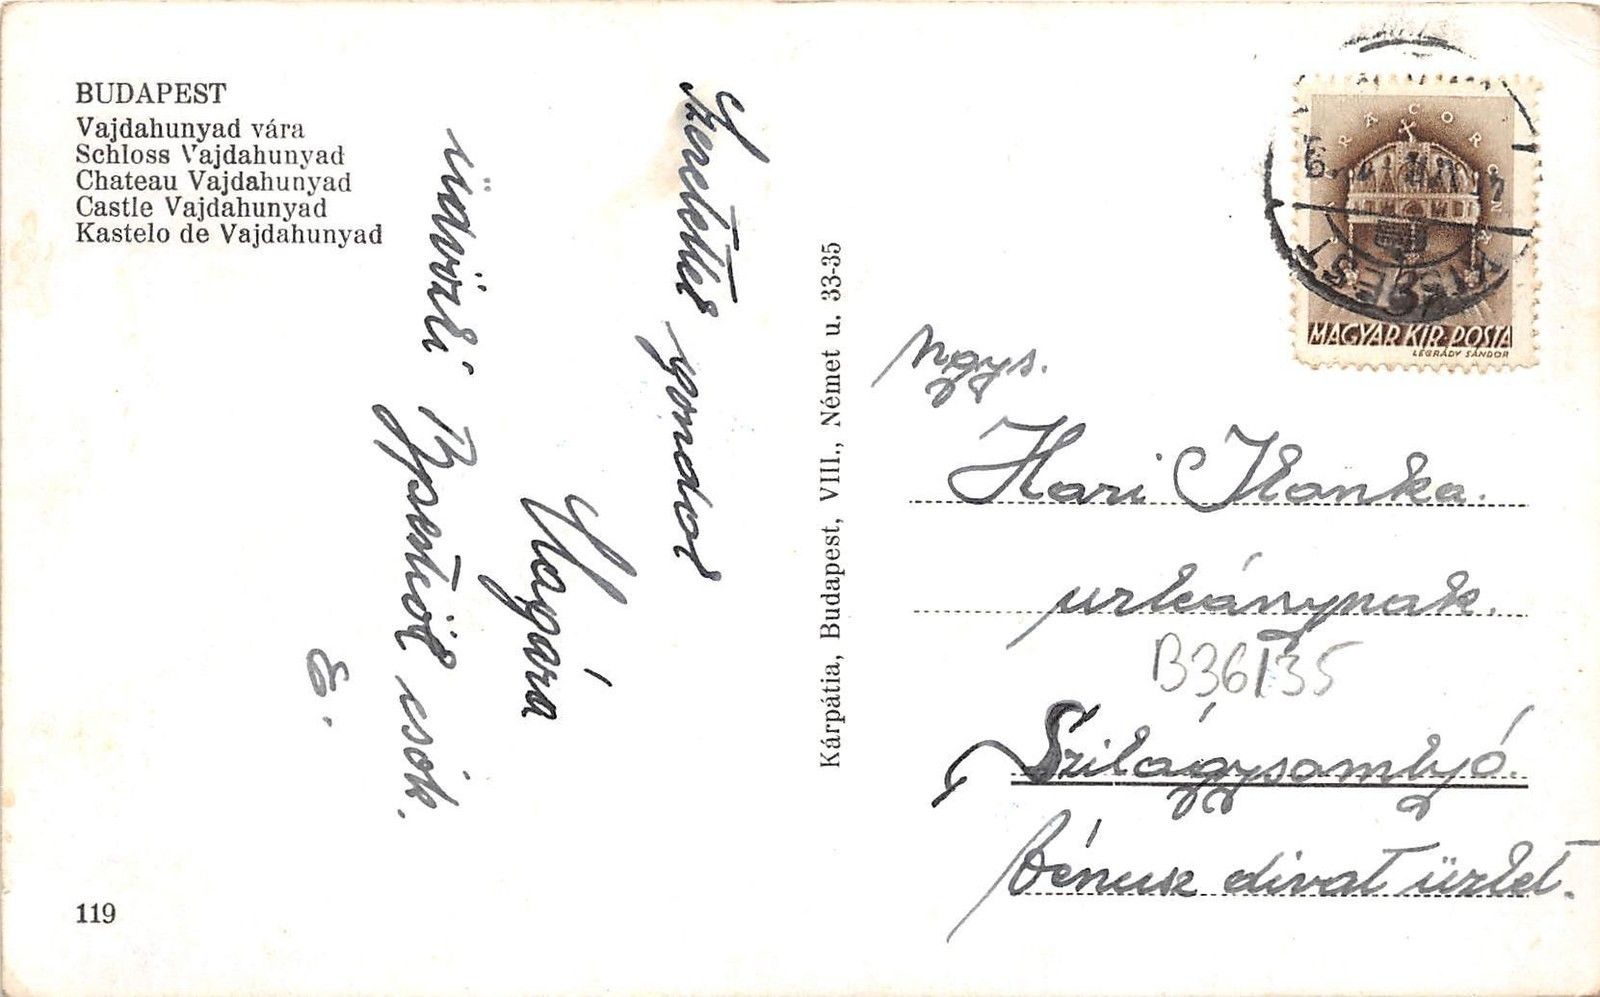 BUDAPEST
Vajdahunyad vára
Schloss Vajdahunyad
Chateau Vajdahunyad
Castle Vajdahunyad
Kastelo de Vajdahunyad
Szeretettel gondol
Magára
üdvözli
csók.
E.
119
Kárpátia, Budapest, VIII., Német u. 33-35
SACRA CORONA
MAGYAR KIR. POSTA
LÉGRÁDY SÁNDOR
Ngys.
Hari Ilonka.
urleánynak.
B36135
Szilágysomlyó.
Vénusz divat üzlet.